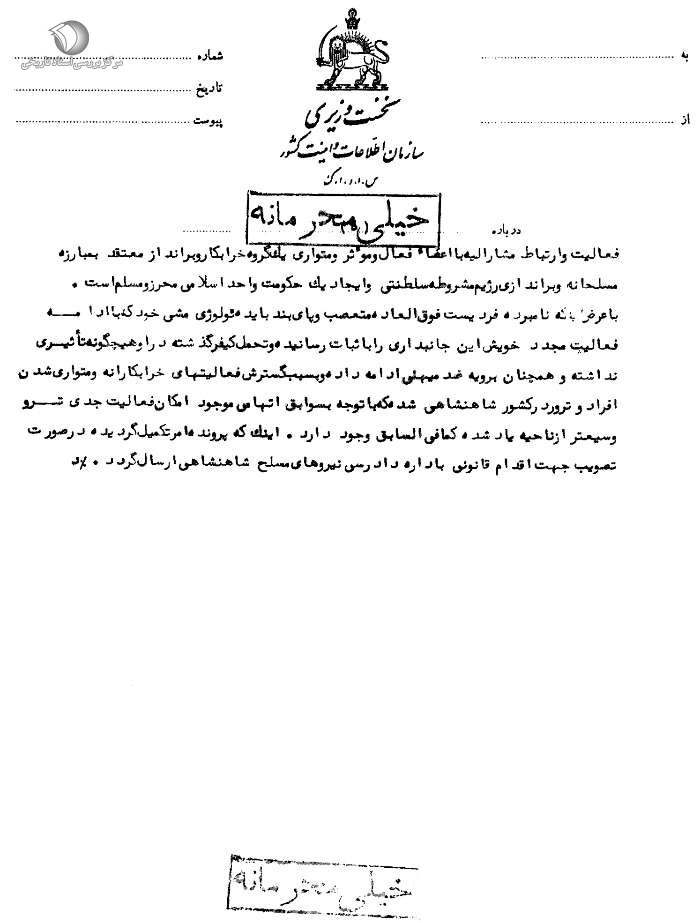 مرکز بررسی اسناد تاریخی
به
شماره
تاریخ
از
پیوست
نخست وزیری
سازمان اطلاعات و امنیت کشور
س.ا.و.ا.ک
خیلی محرمانه
درباره
فعالیت وارتباط مشارالیه بااعضاء فعال وموثر ومتواری یک گروه خرابکاروبرانداز معتقد بمبارزه
مسلحانه وبراندازی رژیم مشروطه سلطنتی وایجاد یک حکومت واحد اسلامی محرزومسلم است .
باعرض اینکه نامبرده فردیست فوق العاده متعصب وپای بند باید ئولوژی مشی خود که باادامـــه
فعالیت مجدد خویش این جانبداری رابا ثبات رسانیده وتحمل کیفرگذشته دراوهیچگونه تأثیری
نداشته و همچنان برویه ضد میهنی ادامه داده وبسبب گسترش فعالیتهای خرابکارانه ومتواری شدن
افراد و ترورد رکشور شاهنشاهی شده که باتوجه بسوابق اتهامی موجود امکان فعالیت جدی تـــرو
وسیعتر ازناحیه یاد شده کمافی السابق وجود دارد . اینک که پرونده امر تکمیل گردیده درصورت
تصویب جهت اقدام قانونی باداره دادرسی نیروهای مسلح شاهنشاهی ارسال گردد .
خیلی محرمانه